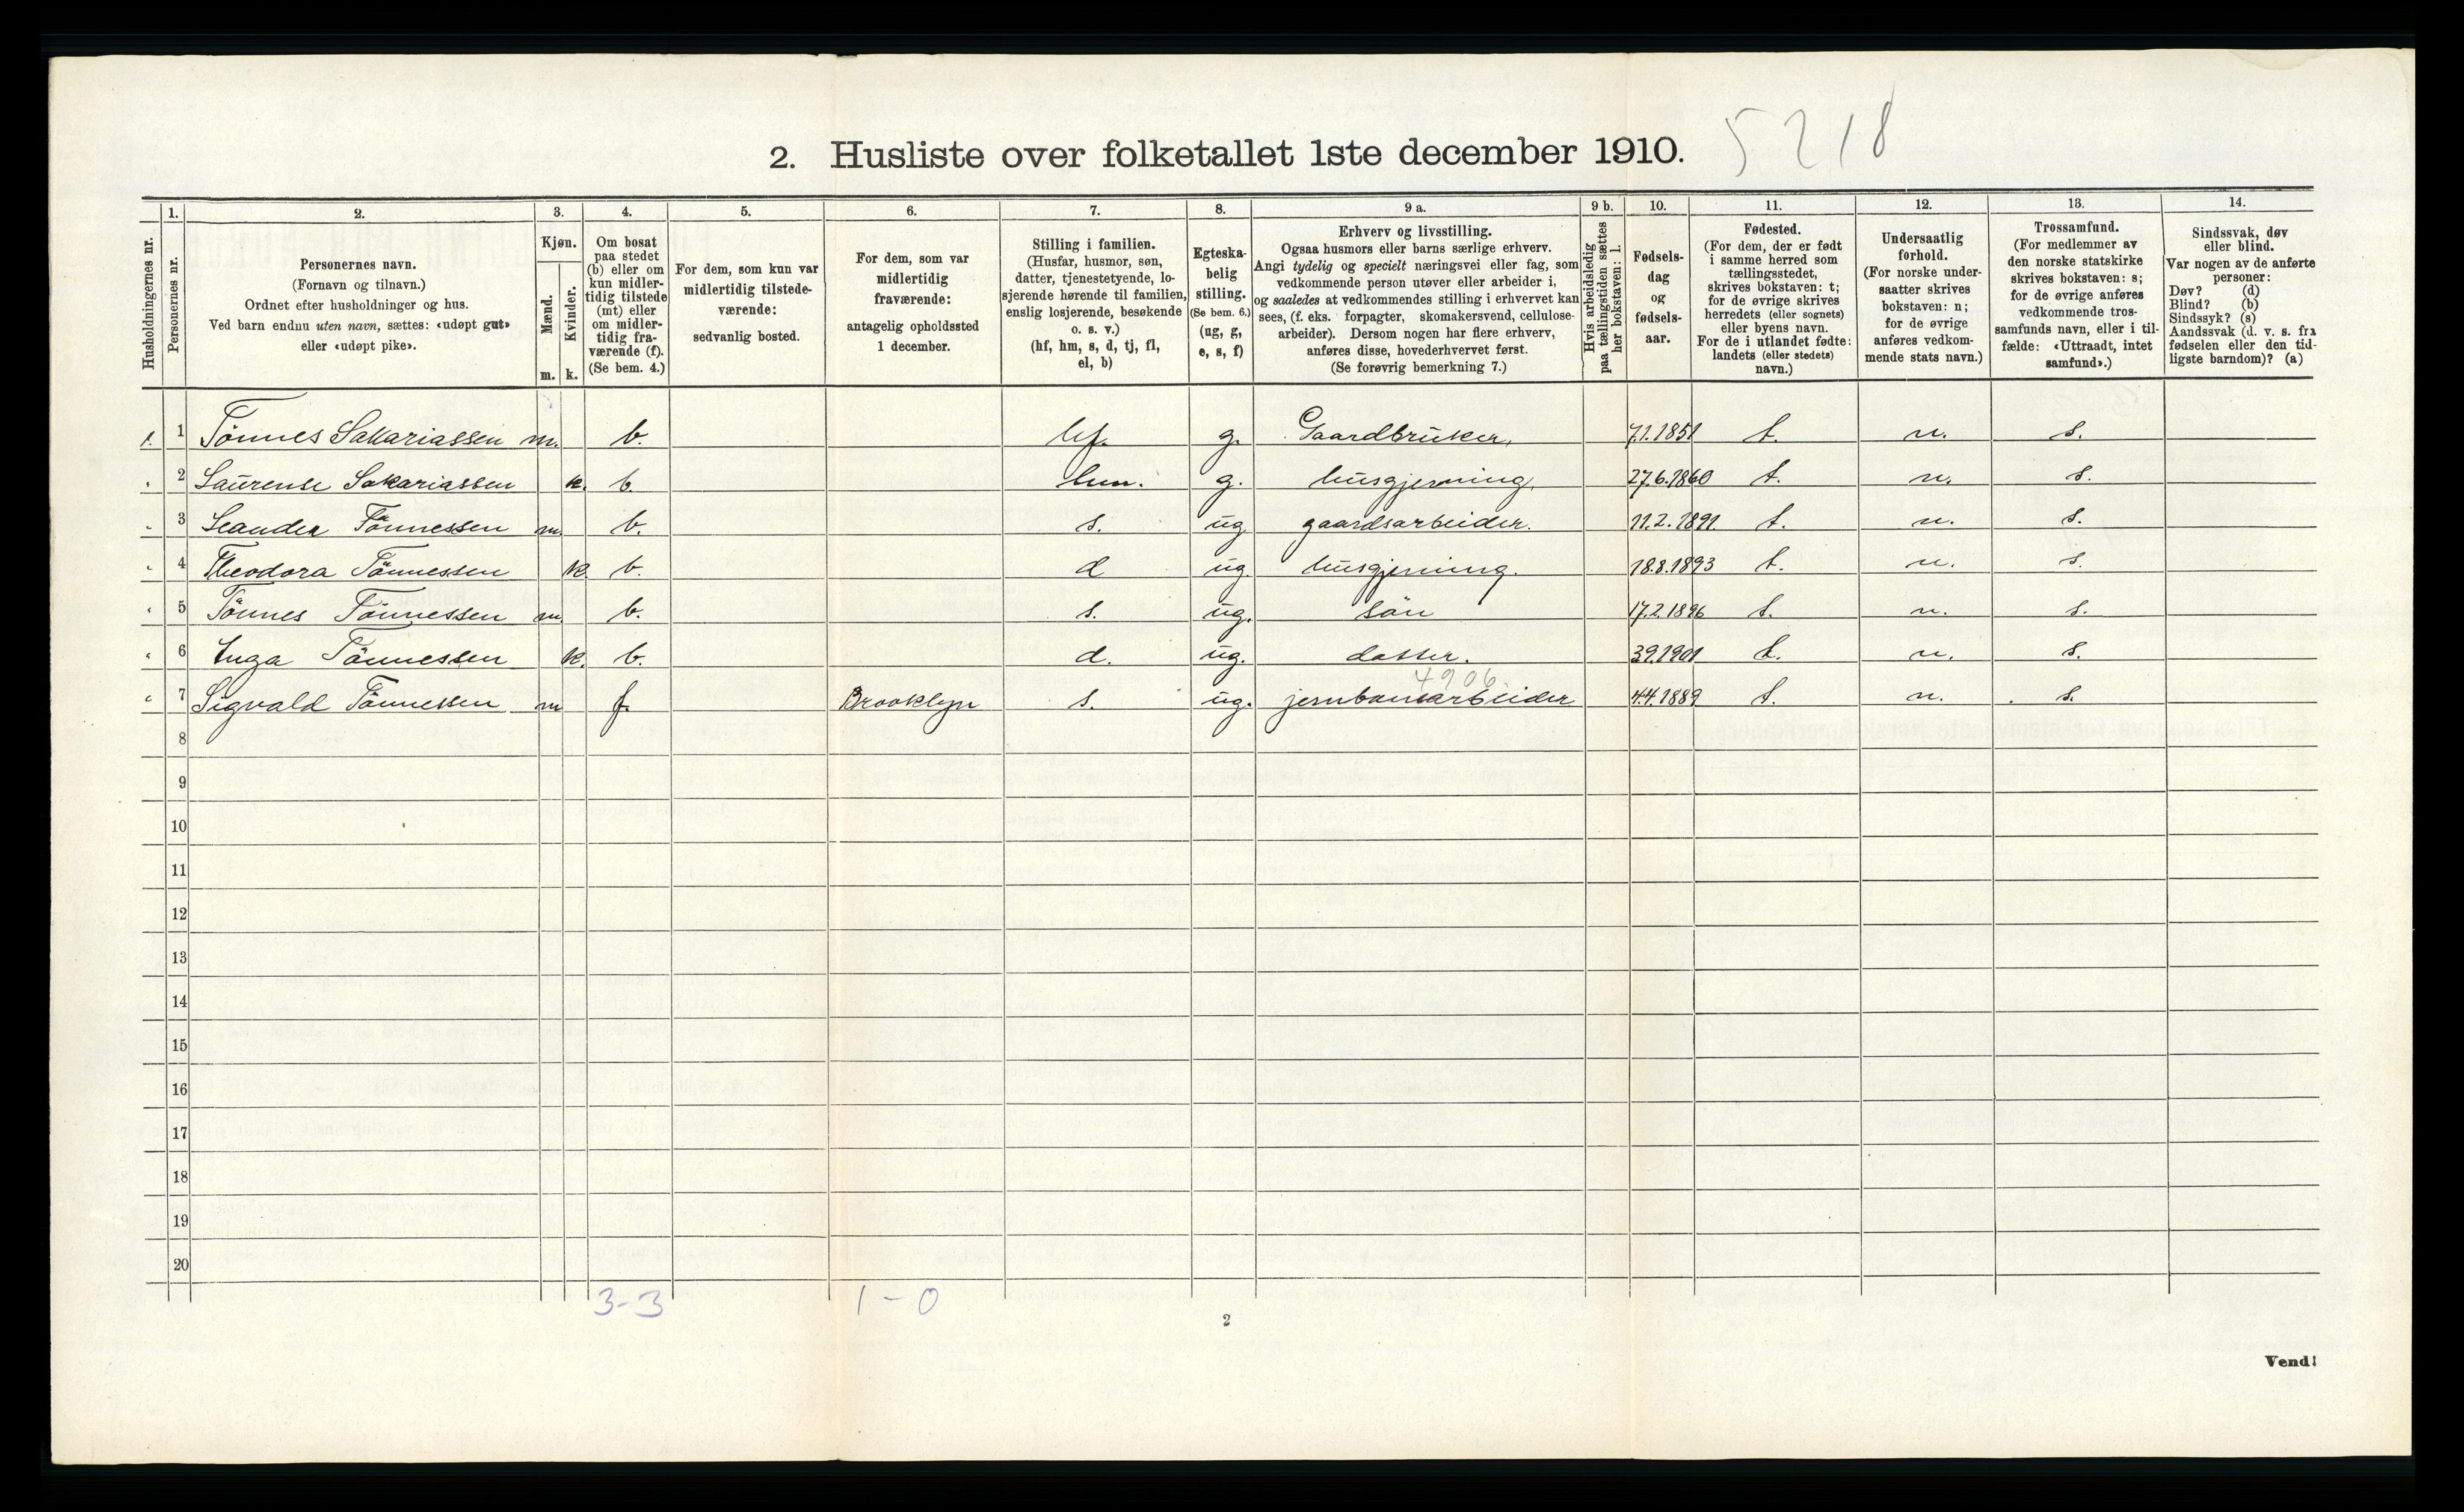 2. Husliste over folketallet 1ste december 1910. 5218
Husholdningernes nr.
1. Personernes nr.
2. Personernes navn.
(Fornavn og tilnavn.)
Ordnet efter husholdninger og hus.
Ved barn endnu uten navn, sættes: «udøpt gut»
eller «udøpt pike».
3. Kjøn.
Mænd. m.
Kvinder. k.
4. Om bosat
paa stedet
(b) eller om
kun midler-
tidig tilstede
(mt) eller
om midler-
tidig fra-
værende (f).
(Se bem. 4.)
5. For dem, som kun var
midlertidig tilstede-
værende:
sedvanlig bosted.
6. For dem, som var
midlertidig
fraværende:
antagelig opholdssted
1 december.
7. Stilling i familien.
(Husfar, husmor, søn,
datter, tjenestetyende, lo-
sjerende hørende til familien,
enslig losjerende, besøkende
o. s. v.)
(hf, hm, s, d, tj, fl,
el, b)
8. Egteska-
belig
stilling.
(Se bem. 6.)
(ug, g,
e, s, f)
9 a. Erhverv og livsstilling.
Ogsaa husmors eller barns særlige erhverv.
Angi tydelig og specielt næringsvei eller fag, som
vedkommende person utøver eller arbeider i,
og saaledes at vedkommendes stilling i erhvervet kan
sees, (f. eks. forpagter, skomakersvend, cellulose-
arbeider). Dersom nogen har flere erhverv,
anføres disse, hovederhvervet først.
(Se forøvrig bemerkning 7.)
9 b. Hvis arbeidsledig
paa tællingstiden sættes
her bokstaven: l.
10. Fødsels-
dag
og
fødsels-
aar.
11. Fødested.
(For dem, der er født
i samme herred som
tællingsstedet,
skrives bokstaven: t;
for de øvrige skrives
herredets (eller sognets)
eller byens navn.
For de i utlandet fødte:
landets (eller stedets)
navn.)
12. Undersaatlig
forhold.
(For norske under-
saatter skrives
bokstaven: n;
for de øvrige
anføres vedkom-
mende stats navn.)
13. Trossamfund.
(For medlemmer av
den norske statskirke
skrives bokstaven: s;
for de øvrige anføres
vedkommende tros-
samfunds navn, eller i til-
fælde: «Uttraadt, intet
samfund».)
14. Sindssvak, døv
eller blind.
Var nogen av de anførte
personer:
Døv? (d)
Blind? (b)
Sindssyk? (s)
Aandssvak (d. v. s. fra
fødselen eller den tid-
ligste barndom)? (a)
1. 1 Tönnes Sakariassen m. b. hf. g. Gaardbruker, 7.1.1851 t. n. s.
2 Laurense Sakariassen k. b. hm. g. husgjerning, 27.6.1860 t. n. s.
3 Leander Tönnessen m. b. s. ug. gaardsarbeider. 11.2.1891. t. n. s.
4 Theodora Tönnessen k. b. d ug. husgjerning. 18.8.1893 t. n. s.
5 Tönnes Tönnessen m. b. s. ug. sön 17.2.1896 t. n. s.
6 Inga Tönnessen k. b. d. ug. datter. 3.9.1901 t. n. s.
4906
7 Sigvald Tönnessen m f. Brooklyn s. ug. jernbanearbeider 4.4.1889 t. n. s.
8
9
10
11
12
13
14
15
16
17
18
19
20
3-3 1-0
2
Vend!